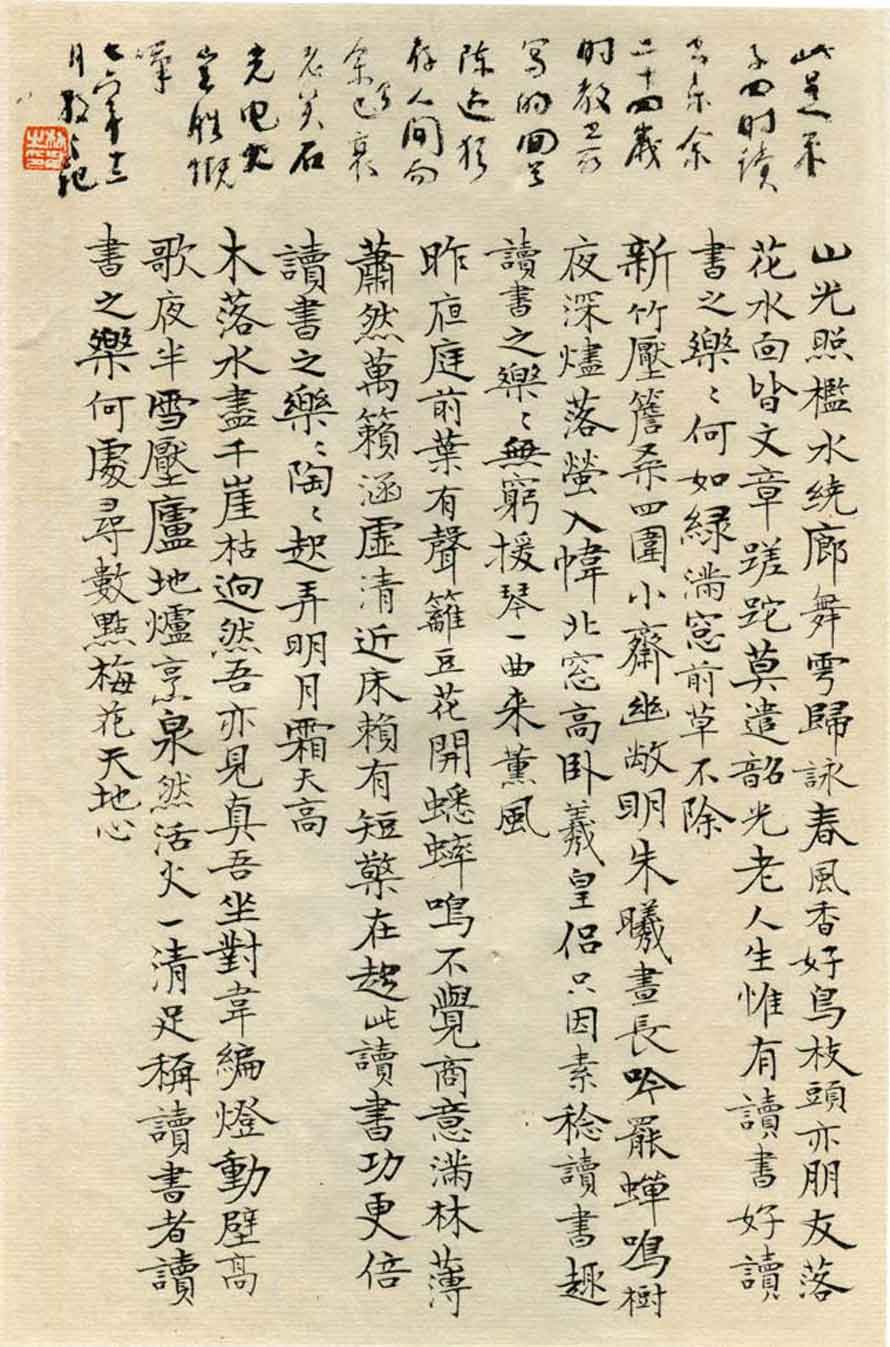 此是朱
子四时读
书乐余
二十四岁
时教
写的回
陈迹犹
存人间而
余已衰
老矣石
光电火
岂胜慨
七六年十二
月散之记
山光照檻水繞廊舞雩歸詠春風香好鳥枝頭亦朋友落
花水面皆文章蹉跎莫遣韶光老人生惟有讀書好讀
書之樂〻何如緑滿窓前草不除
新竹壓簷桑四圍小齋幽敞明朱曦晝長吟罷蟬鳴樹
夜深燼落螢入幃北窓高卧羲皇侣只因素稔讀書趣
讀書之樂〻無窮援琴一曲来薰風
昨夜庭前葉有聲籬豆花開蟋蟀鳴不覺商意滿林薄
蕭然萬籟涵虚清近床賴有短檠在趁此讀書功更倍
讀書之樂〻陶〻起弄明月霜天高
木落水盡千崖枯迥然吾亦見真吾坐對韋編燈動壁高
歌夜半雪壓廬地爐烹泉然活火一清足稱讀書者讀
書之樂何處尋數點梅花天地心